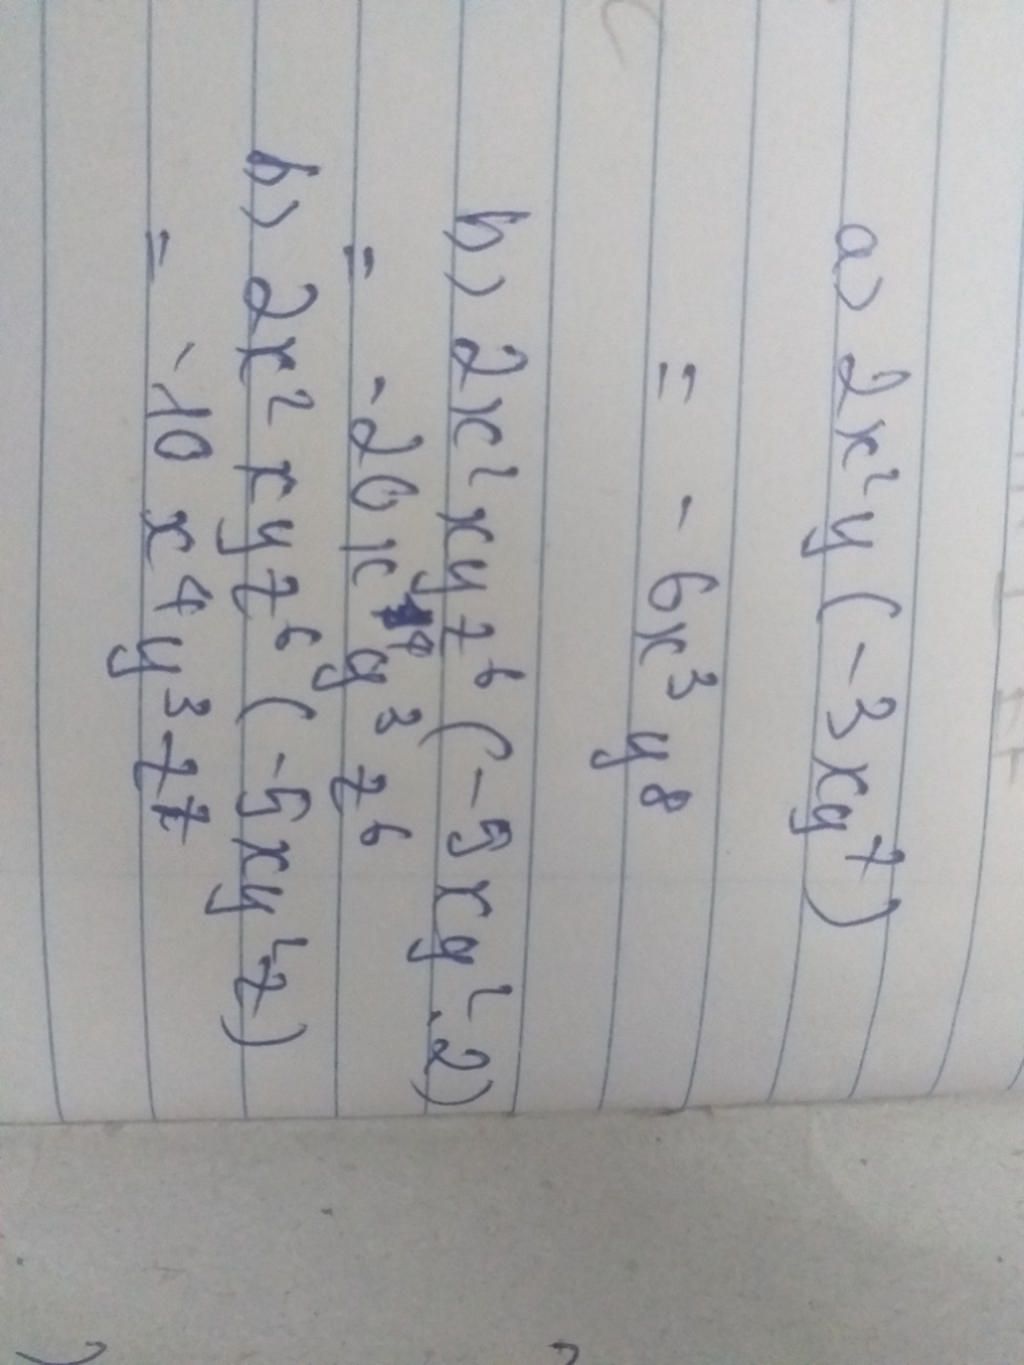 a) 2x²y (-3xy⁷)
= - 6x³y⁸
b) 2x² xyz⁶ (-5xy².2)
= -20 x⁴ y³ z⁶
b) 2x² xyz⁶ (-5xy²z)
= -10 x⁴ y³ z⁷